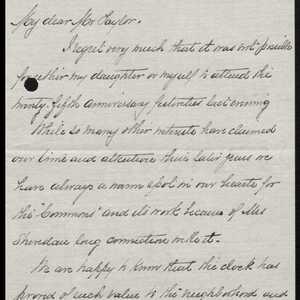 My dear Mr Taylor.
I regret very much that it was not possible
for either my daughter or myself to attend the
ninety-fifth anniversary festivities last evening
While so many other interests have claimed
our time and attention these later years we
have always a warm spot in our hearts for
the "Commons" and its work because of Mrs
Sheridan's long connection with it.
We are happy to know that the clock has
proved of such value to the neighborhood and